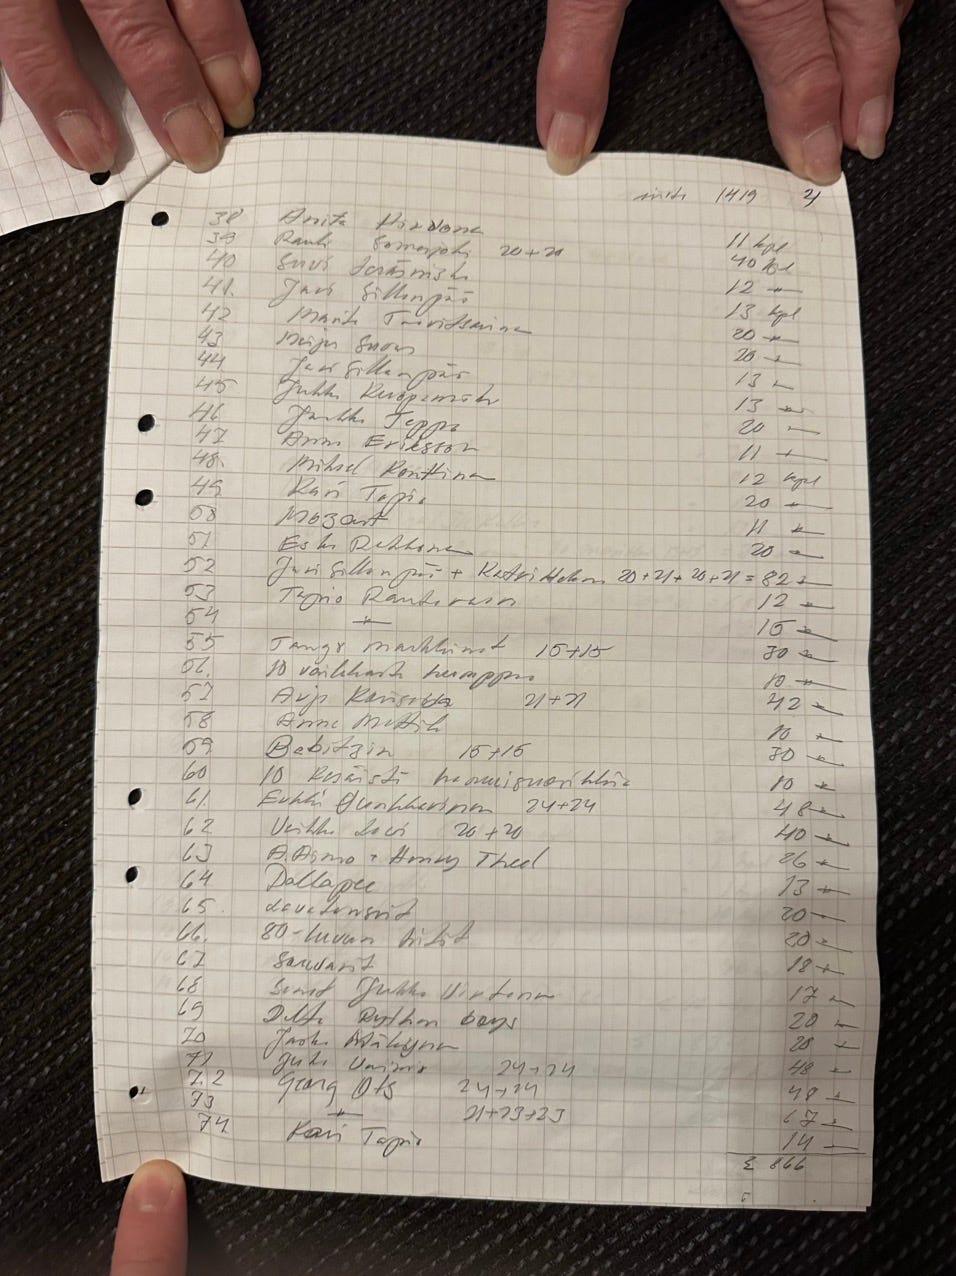 1419 2
38 Anita Hirvonen 11 kpl
39 Rauli Somerjoki 20+20 40 kpl
40 Suvi Teräsniska 12 -"-
41. Jari Sillanpää 13 kpl
42 Marita Taavitsainen 20 -"-
43 Meiju Suvas 20 -"-
44 Jari Sillanpää 13 -"-
45 Jukka Kuoppamäki 13 -"-
46 Jarkko Teppo 20 -"-
47 Anna Eriksson 11 -"-
48. Mikael Konttinen 12 kpl
49 Kari Tapio 20 -"-
50 Mozart 11 -"-
51 Esko Rahkonen 20 -"-
52 Jari Sillanpää + Katri Helena 20+21+20+21 = 82 -"-
53 Tapio Rautavaara 12 -"-
54 -"- 15 -"-
55 Tango markkinat 15+15 30 -"-
56. 10 humppa 10 -"-
57 Arja Koriseva 21+21 42 -"-
58 Anna Mutti 10 -"-
59 Babitzin 15+15 30 -"-
60 10 Kesäistä 10 -"-
61. Erkki Junkkarinen 24+24 48 -"-
62 Veikko Lavi 20+20 40 -"-
63 A. Aimo + Henry Theel 26 -"-
64 Dallape 13 -"-
65. Lavatangot 20 -"-
66. 80-luvun hitit 20 -"-
67 Souvarit 18 -"-
68 Jukka Virtanen 17 -"-
69 Delta Rython boys 20 -"-
70 20 -"-
71 Juha Vainio 24+24 48 -"-
72 Georg Ots 24+24 48 -"-
73 -"- 21+23+23 67 -"-
74 Kari Tapio 14 -"-
Σ 866